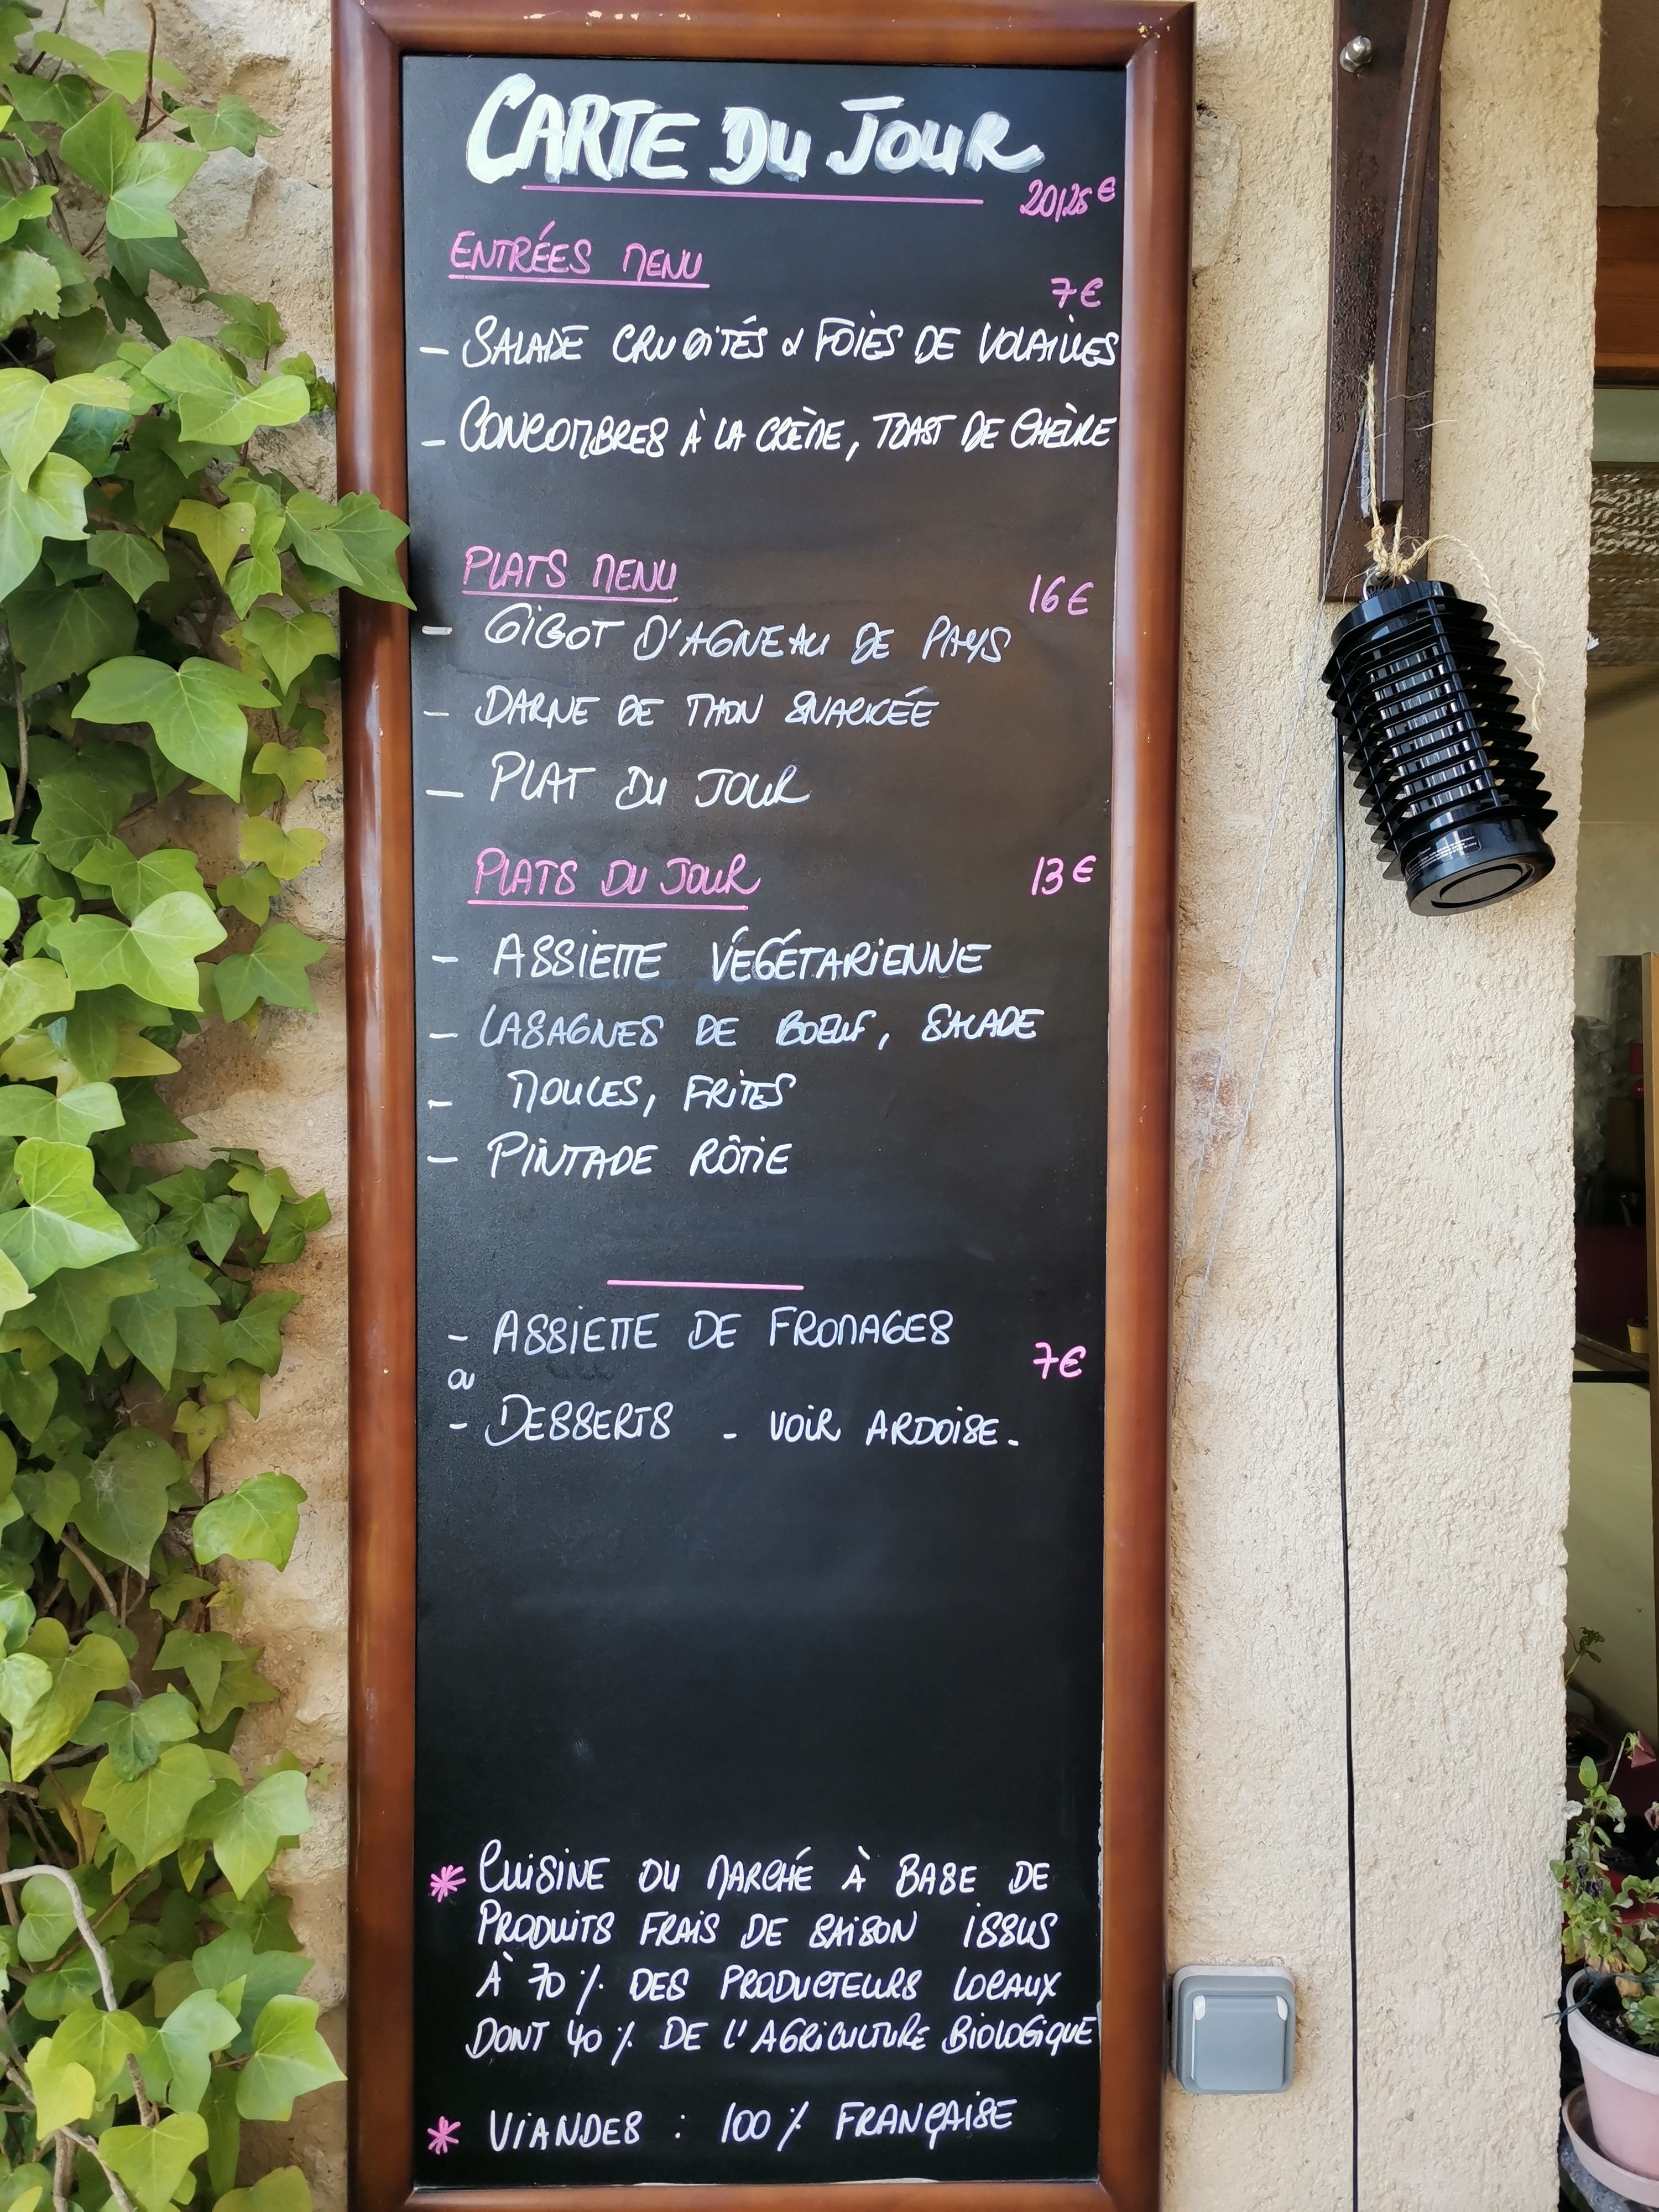 CARTE DU JOUR
20/25€
ENTRÉES MENU
7€
- SALADE CRUDITÉS & FOIES DE VOLAILLES
- CONCOMBRES À LA CRÈME, TOAST DE CHÈVRE
PLATS MENU
16€
- GIGOT D'AGNEAU DE PAYS
- DARNE DE THON SNACKÉE
- PLAT DU JOUR
PLATS DU JOUR 13€
- ASSIETTE VÉGÉTARIENNE
- LASAGNES DE BOEUF, SALADE
- MOULES, FRITES
- PINTADE RÔTIE
- ASSIETTE DE FROMAGES
7€
ou
- DESSERTS - VOIR ARDOISE.
* CUISINE DU MARCHÉ À BASE DE
PRODUITS FRAIS DE SAISON ISSUS
À 70% DES PRODUCTEURS LOCAUX
DONT 40% DE L'AGRICULTURE BIOLOGIQUE
* VIANDES : 100% FRANÇAISE